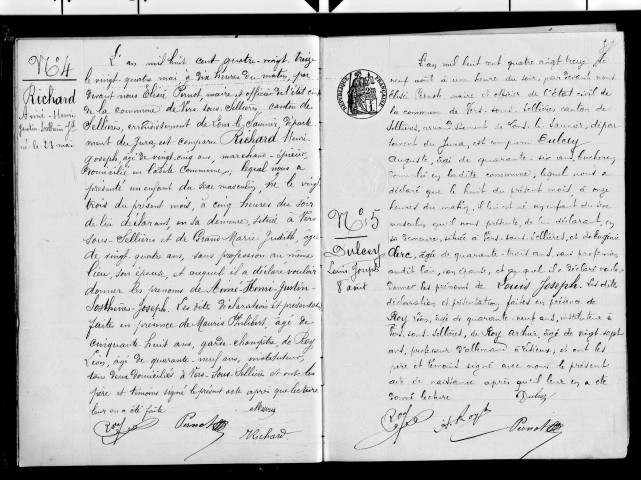 N° 4
Richard
Aimé-Henri
Justin-Sosthène J.ph
né le 23 mai
L'an mil huit cent quatre-vingt-treize
le vingt-quatre mai, à dix heures du matin, par
devant nous Elisée Pernot, maire et officier de l'état civil
de la commune de Vers-sous-Sellières, canton de
Sellières, arrondissement de Lons-le-Saunier, départe
ment du Jura, est comparu Richard Henri
Joseph, âgé de vingt-cinq ans, marchand-épicier,
domicilié en ladite commune, lequel nous a
présenté un enfant du sexe masculin, né le vingt
trois du présent mois, à cinq heures du soir
de lui déclarant, en sa demeure, située à Vers
sous-Sellières et de Grand Marie Judith, âgée
de vingt-quatre ans, sans profession au même
lieu, son épouse, et auquel il a déclaré vouloir
donner les prénoms de Aimé-Henri-Justin-
Sosthène Joseph. Les dite déclaration et présentation
faite en présence de Mauris Philibert, âgé de
cinquante huit ans, garde-champêtre, de Roy
Léon, âgé de quarante-neuf ans, instituteur,
tous deux domiciliés à Vers-sous-Sellières et ont les
père et témoins signé le présent acte après que lecture
leur en a été faite
Mauris
Roy
Pernot
Richard
N° 5
Dulcey
Louis Joseph
8 août
L'an mil huit cent quatre-vingt-treize, le
neuf août à une heure du soir, par devant nous
Elisée Pernot, maire et officier de l'état civil
de la commune de Vers-sous-Sellières canton de
Sellières, arrondissement de Lons-le-Saunier, dépar
tement du Jura, est comparu Dulcey
Auguste, âgé de quarante-six ans, bûcheron,
domicilié en ladite commune, lequel nous a
déclaré que le huit du présent mois, à onze
heures du matin, il lui est né un enfant du sexe
masculin qu'il nous présente, de lui déclarant, en
sa demeure, située à Vers-sous-Sellières, et de Eugénie
Clerc, âgée de quarante-trois ans, sans profession
audit lieu, son épouse, et auquel il a déclaré vouloir
donner les prénoms de Louis Joseph. Les dite
déclaration et présentation, faites en présence de
Roy Léon, âgé de quarante-neuf ans, instituteur à
Vers-sous-Sellières, de Roy Arthur, âgé de vingt-sept
ans, professeur d'allemand, et ont les
père et témoins signé avec nous le présent
acte de naissance après qu'il leur en a été
donné lecture
Dulcey
Roy
A. Roy
Pernot